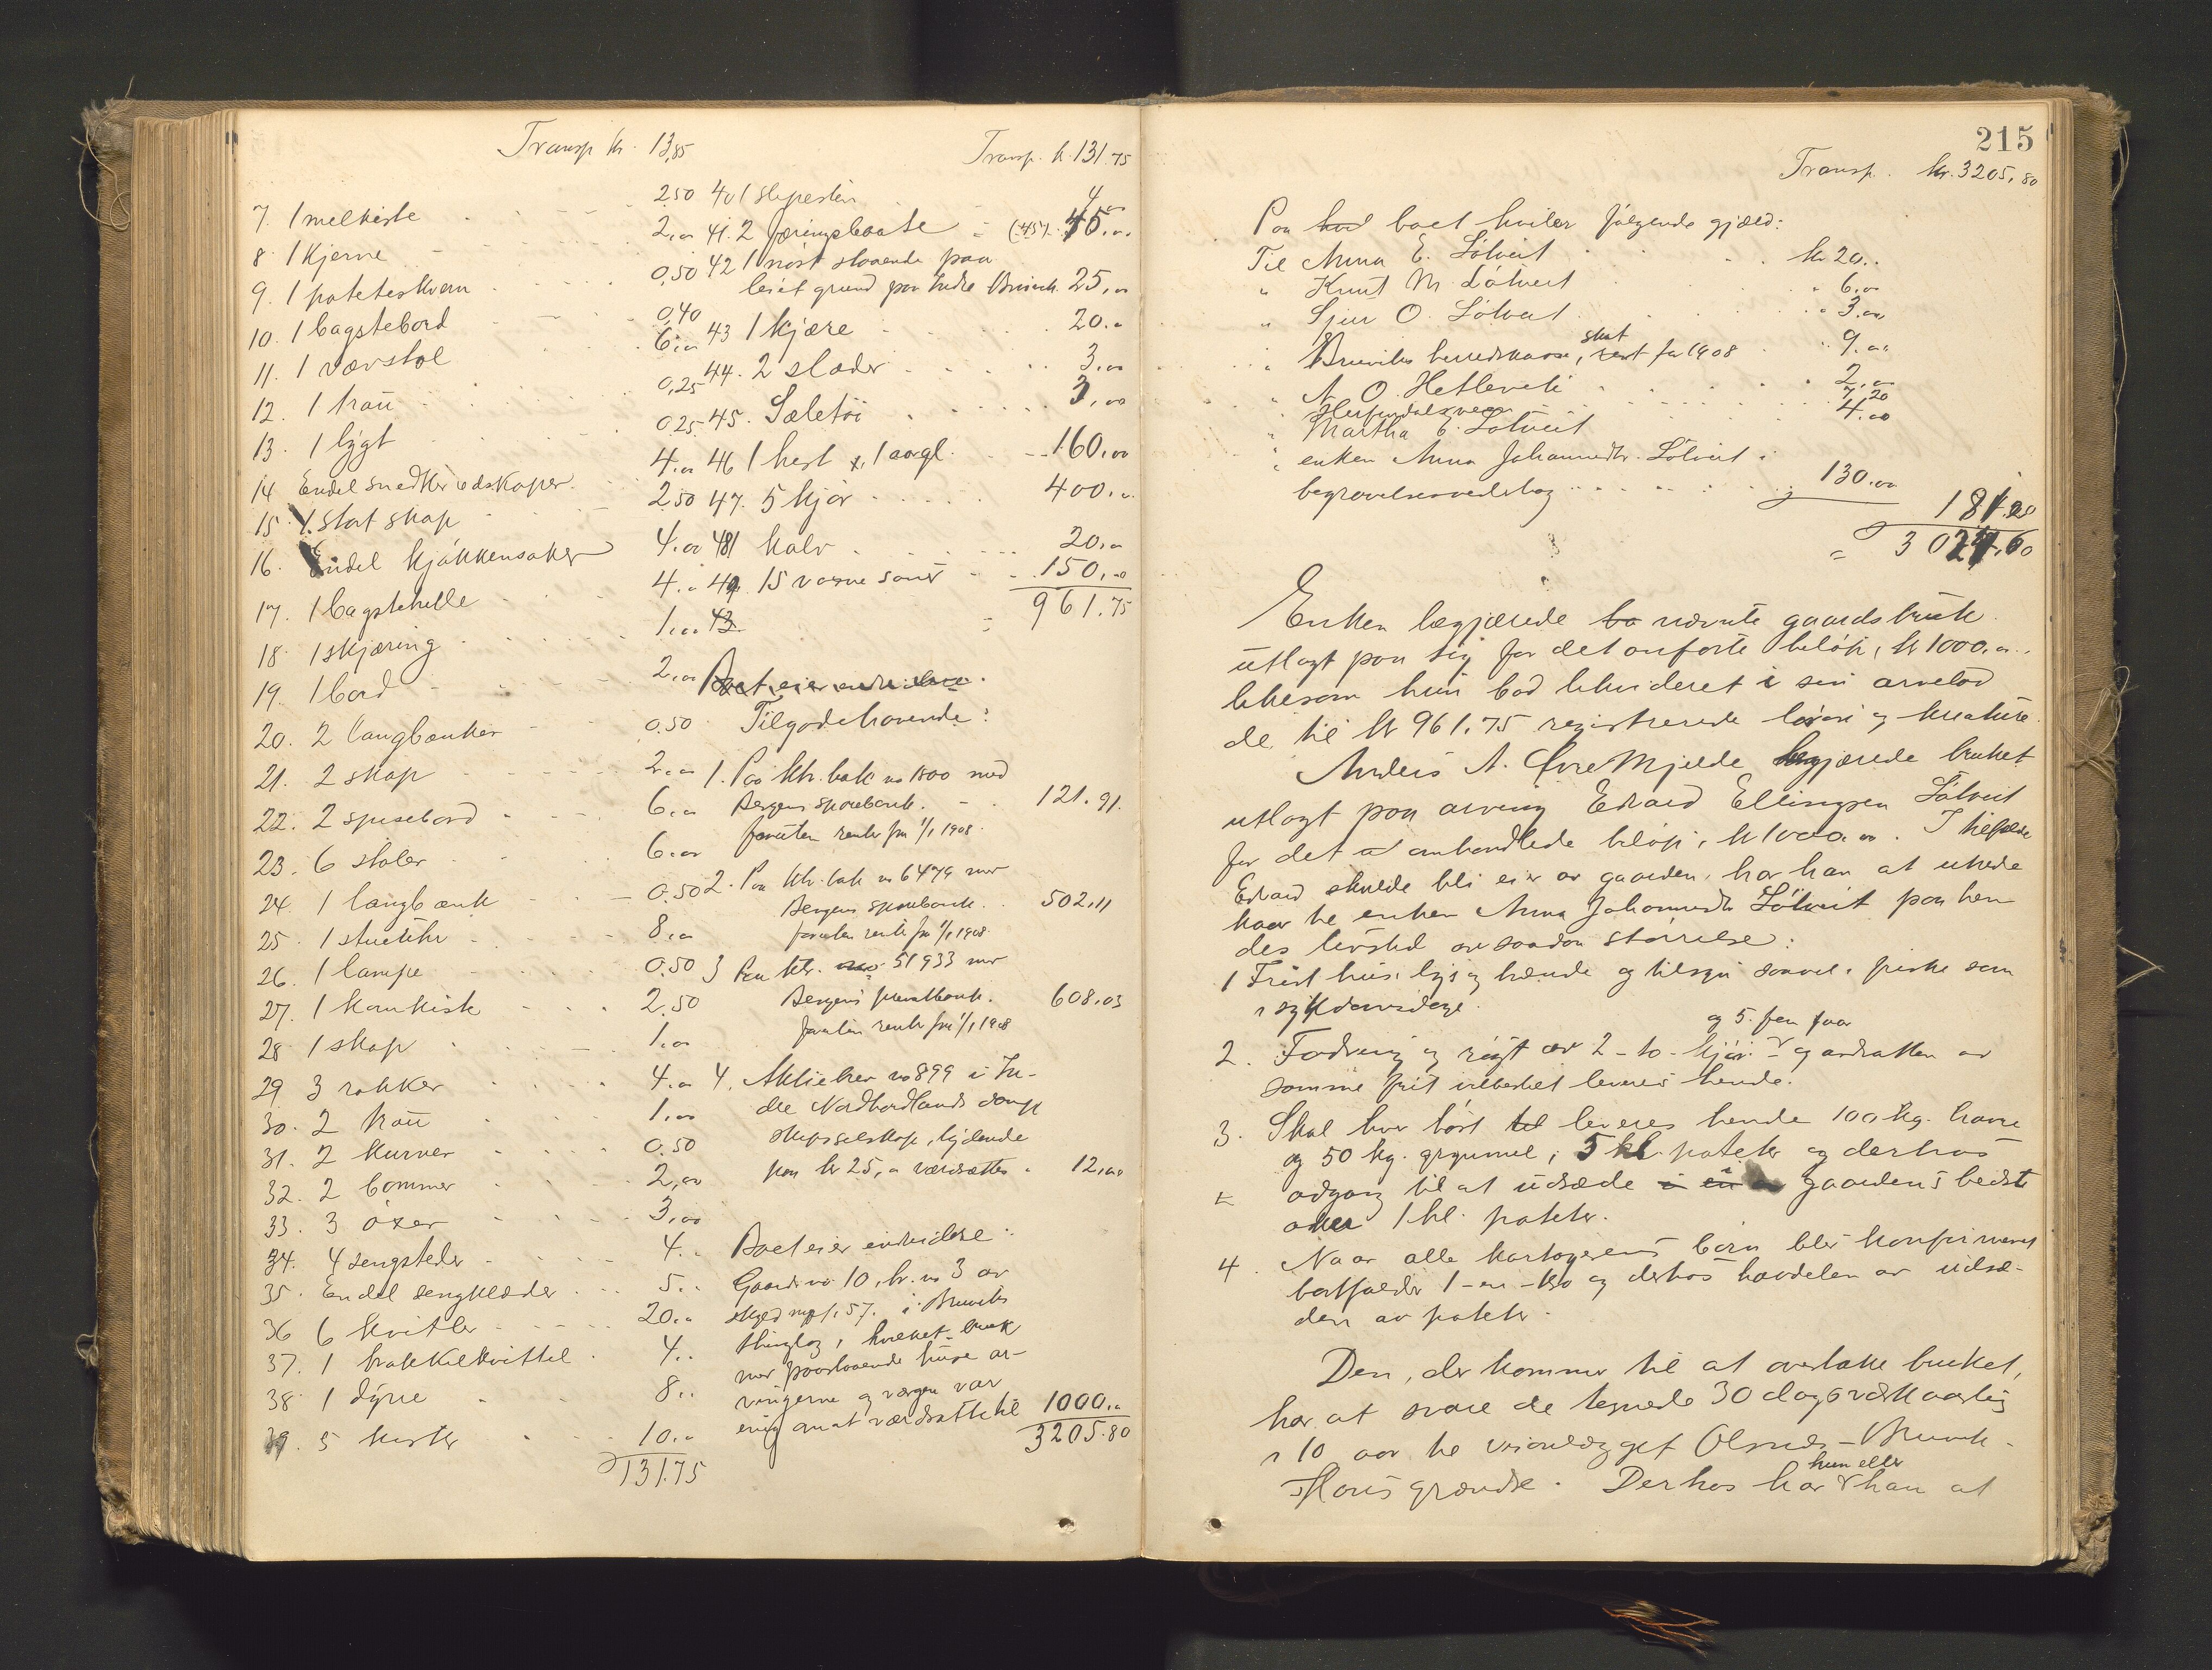 Transp kr. 13,85
7. 1 melkiste 2.50
8. 1 kjerne 2.00
9. 1 poteteskvern 0,50
10. 1 bagstebord 0,40
11. 1 vævstol 6.00
12. 1 trau 0,25
13. 1 lygt 0.25
14 Endel snedkerredskaper 4.00
15. 1 slat skap 2.50
16. Endel kjøkkensaker 4.00
17. 1 bagstehelle 4.00
18. 1 skjæring 1.00
19. 1 bord 2.00
20. 2 langbænker 0.50
21. 2 skap 2.00
22. 2 spisebord 6.00
23. 6 stoler 6.00
24. 1 langbænk 0.50
25. 1 stueuhr 8.00
26. 1 lampe 0.50
27. 1 kornkiste 2.50
28 1 skap 1.00
29 3 rokker 4.00
30. 2 trau 1.00
31. 2 kurver 0.50
32. 2 bommer 2,00
33. 3 øxer 3,00
34. 4 sengsteder 4..
35. Endel sengklæder 5..
36 6 kvitler 20..
37. 1 brokkelkvittel 4..
38 1 dyne 8..
39. 5 kister 10..
131.75
Transp. kr. 131.75
40 1 slipesten 4
41. 2 færingsbaate (45) 45..
42 1 nøst staaende paa
leiet grund paa Indre Bruvik 25,00
43 1 kjære 20..
44. 2 slæder 3,00
45. Sæletøi 3,00
46 1 hest, 1 aargl. 160,00
47. 5 kjør 400..
48 1 kalv 20,00
49. 15 voxne sauer 150,00
43. = 961.75
Boet eier endvidere.
Tilgodehavende:
1. Paa ktr. bok no 1800 med
Bergens sparebank. 121.91.
foruten renter fra 1/1 1908.
2. Paa ktr. bok no 6479 med
Bergens sparebank 502,11
foruten renter fra 1/1 1908.
3 Paa ktr. no 51933 med
Bergens privatbank. 608,03
foruten renter fra 1/1 1908
4. Aktiebrev no 899 i In-
dre Nordhordlands damp
skipsselskap, lydende
paa kr 25,00 værdsattes 12,00
Boet eier endvidere:
Gaards no. 10, br. no 3 av
skyld mrk 1,57. i Bruviks
thinglag, hvilket bruk
med paastaaende huse ar-
vingerne og værgen var
enig om at værdsætte til 1000,00
3205.80
215
Transp. kr. 3205,80
Paa boet hviler følgende gjæld:
Til Anna E. Løtveit kr 20..
" Knut M. Løtveit " 6,00
" Sjur O. Løtveit " 3,00
" Bruviks herredskasse, skat for 1908 " 9.00
" A. O. Hetleveit 2,00
Herfindalsveien 7,20
" Martha E. Løtveit 4.00
" enken Anna Johannesdtr. Løtveit i
begravelsesvederlag 130,00
181.20
= 3024,60
Enken begjærede bo nævnte gaardsbruk
utlagt paa sig for det anførte beløp, kr 1000,00,
likesom hun bad likvideret i sin arvelod
de til kr 961.75 registrerede løsøre og kreature.
Anders A. Øvre Mjelde begjærede bruket
utlagt paa arving Edvard Ellingsen Løtveit
for det omhandlede beløp, kr 1000.00. I tilfælde
Edvard skulde bli eier av gaarden, har han at utrede
kaar til enken Anna Johannesdtr. Løtveit paa hen
des livstid av saadan størrelse:
1 Frit hus, lys og brænde og tilsyn saavel i friske som
i sykdomsdage.
og 5. fem faar
2. Fodring og røgt av 2 - to - kjør og avdratten av
samme frit utberket leveres hende.
3. Skal hver høst leveres hende 100 kg. havre
og 50 kg. grynmel, 5 hl. poteter og derhos
adgang til at utsæde i gaardens bedste
aker 1 hl. poteter.
4. Naar alle kartagerens børn blir konfirmeret
bortfalder 1 - en - ko og derhos halvdelen av utsæ-
den av poteter.
Den, der kommer til at overtake bruket,
har at svare de tegnede 30 dagsverk aarlig
i 10 aar til veianlægget Olsnes-Bruvik-
hun eller
Hous grændse. Derhos har han at